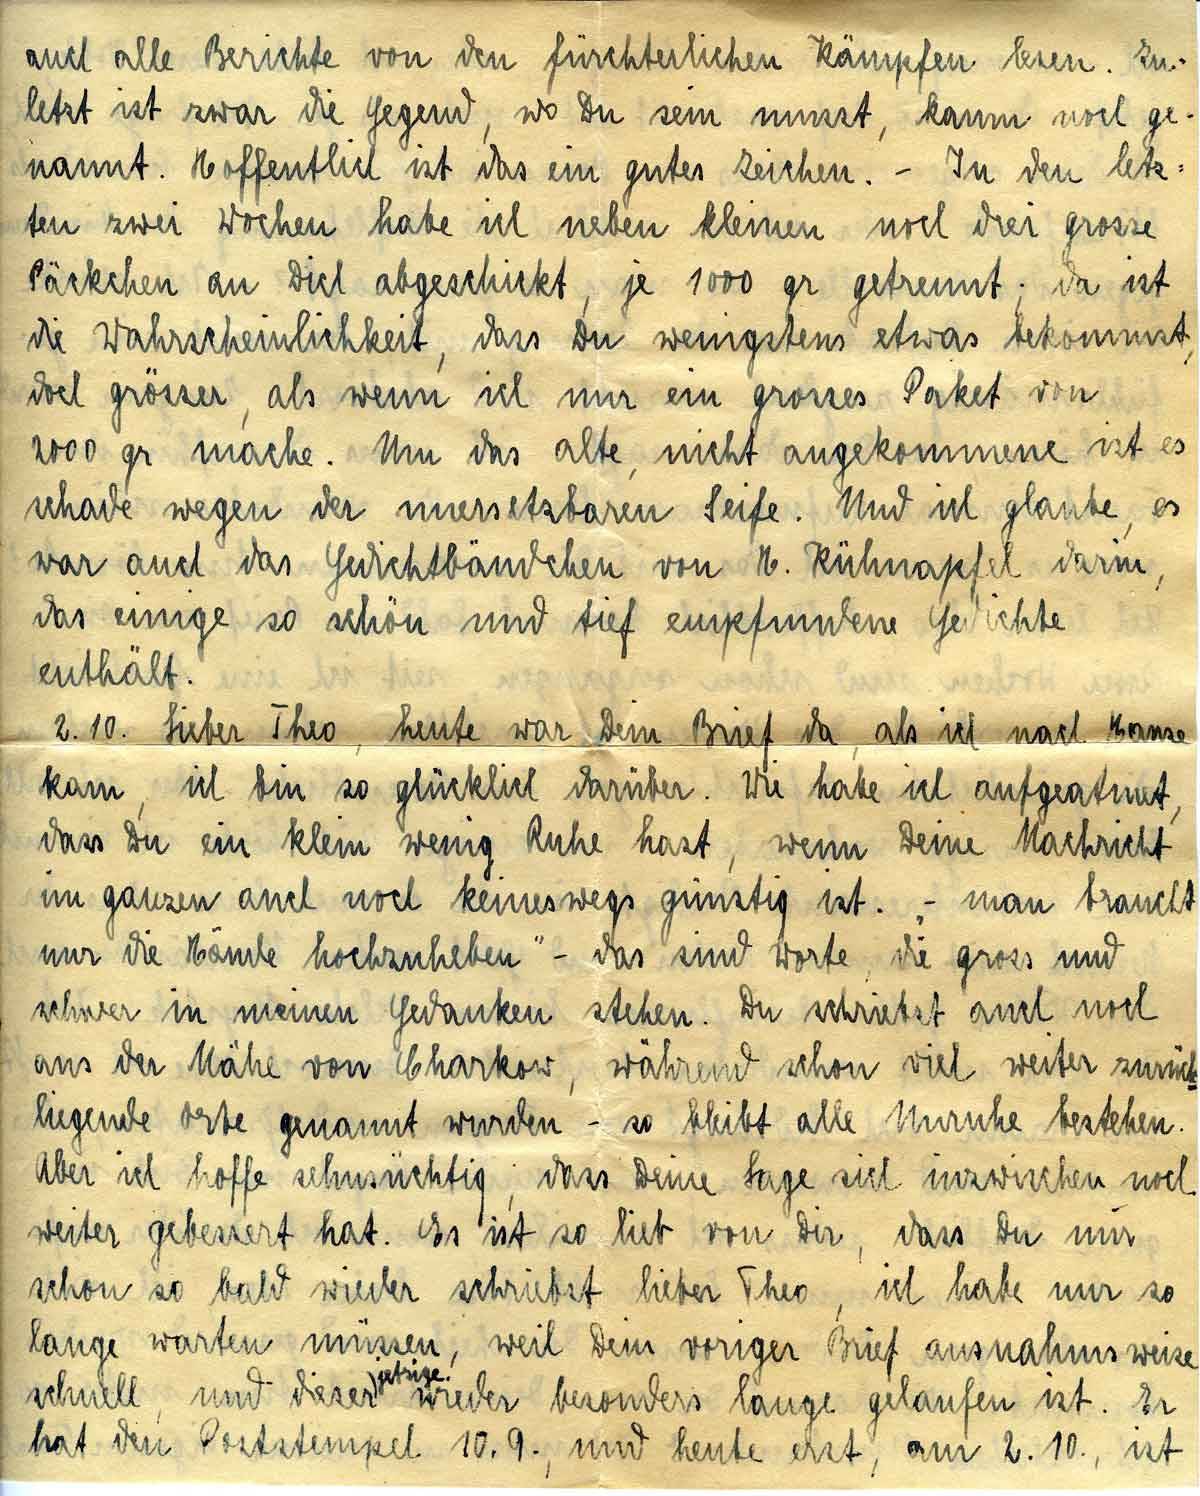 auch alle Berichte von den fürchterlichen Kämpfen lesen. Zu-
letzt ist zwar die Gegend, wo Du sein musst, kaum noch ge-
nannt. Hoffentlich ist das ein gutes Zeichen. - In den letz-
ten zwei Wochen habe ich neben kleinen noch drei grosse
Päckchen an Dich abgeschickt, je 1000 gr getrennt; da ist
die Wahrscheinlichkeit, dass Du wenigstens etwas bekommst,
doch grösser, als wenn ich nur ein grosses Paket von
2000 gr mache. Um das alte, nicht angekommene ist es
schade wegen der unersetzbaren Seife. Und ich glaube, es
war auch das Gedichtbändchen von H. Kühnapfel darin,
das einige so schön und tief empfundene Gedichte
enthält.
2.10. Lieber Theo, heute war Dein Brief da, als ich nach Hause
kam, ich bin so glücklich darüber. Wie habe ich aufgeatmet,
dass Du ein klein wenig Ruhe hast, wenn Deine Nachricht
im ganzen auch noch keineswegs günstig ist. „- man braucht
nur die Hände hochzuheben" - das sind Worte, die gross und
schwer in meinen Gedanken stehen. Du schriebst auch noch
aus der Nähe von Charkow, während schon viel weiter zurück
liegende Orte genannt wurden - so bleibt alle Unruhe bestehen.
Aber ich hoffe sehnsüchtig, dass Deine Lage sich inzwischen noch
weiter gebessert hat. Es ist so lieb von Dir, dass Du mir
schon so bald wieder schriebst lieber Theo, ich habe nur so
lange warten müssen, weil Dein voriger Brief ausnahmsweise
schnell, und dieser jetzige wieder besonders lange gelaufen ist. Er
hat den Poststempel 10.9., und heute erst, am 2.10., ist